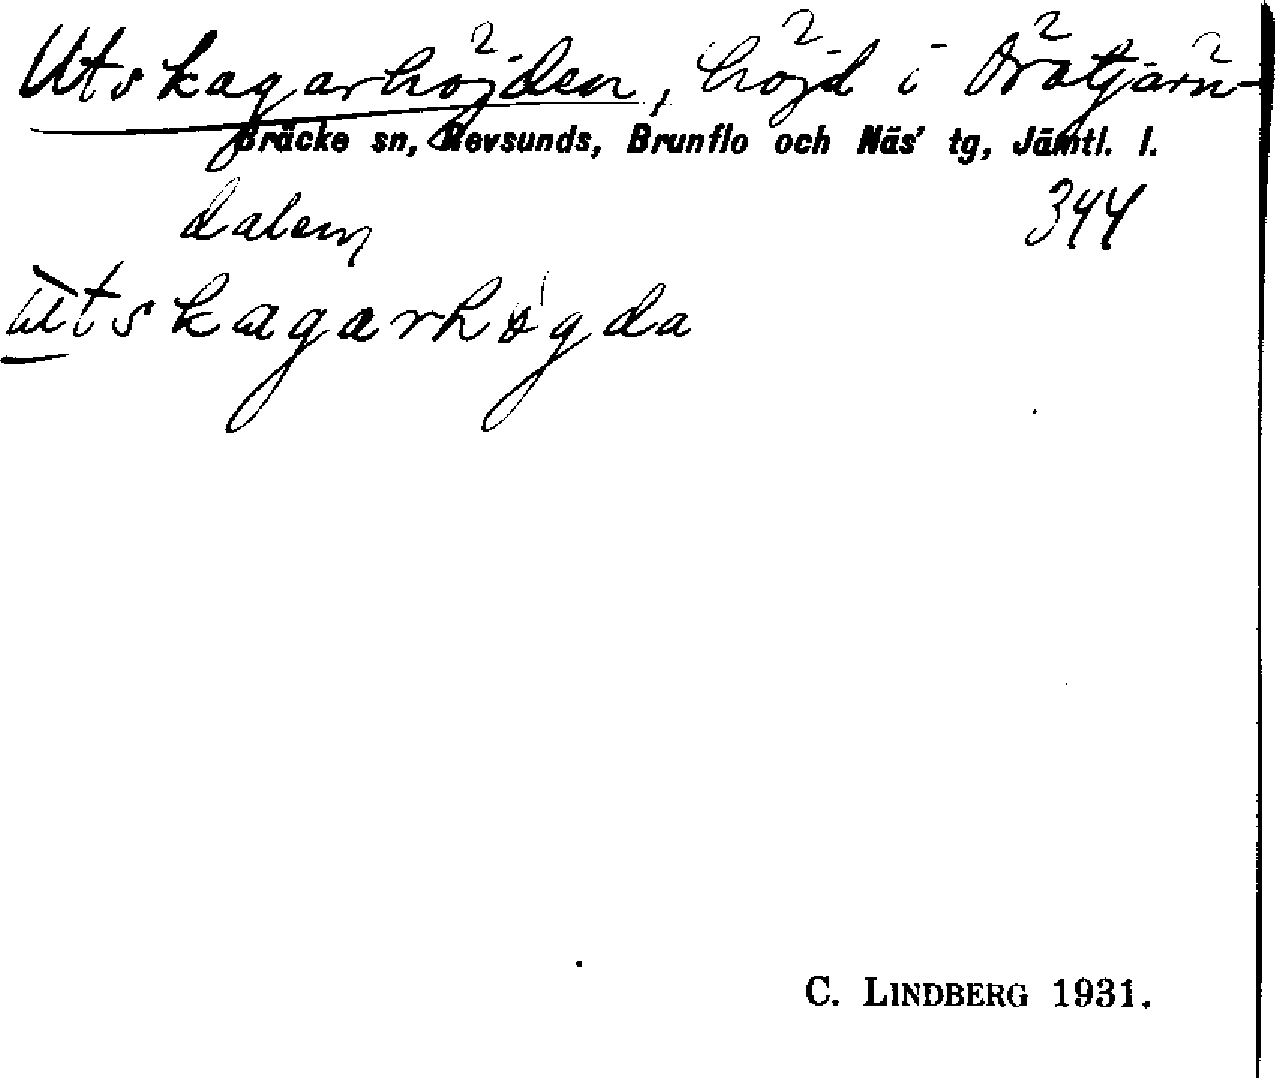 Utskagarhöjden, höjd i Öratjärn-
Bräcke sn, Revsunds, Brunflo och Näs' tg, Jämtl. l.
dalen 344
ūtskagarhøgda
C. LINDBERG 1931.